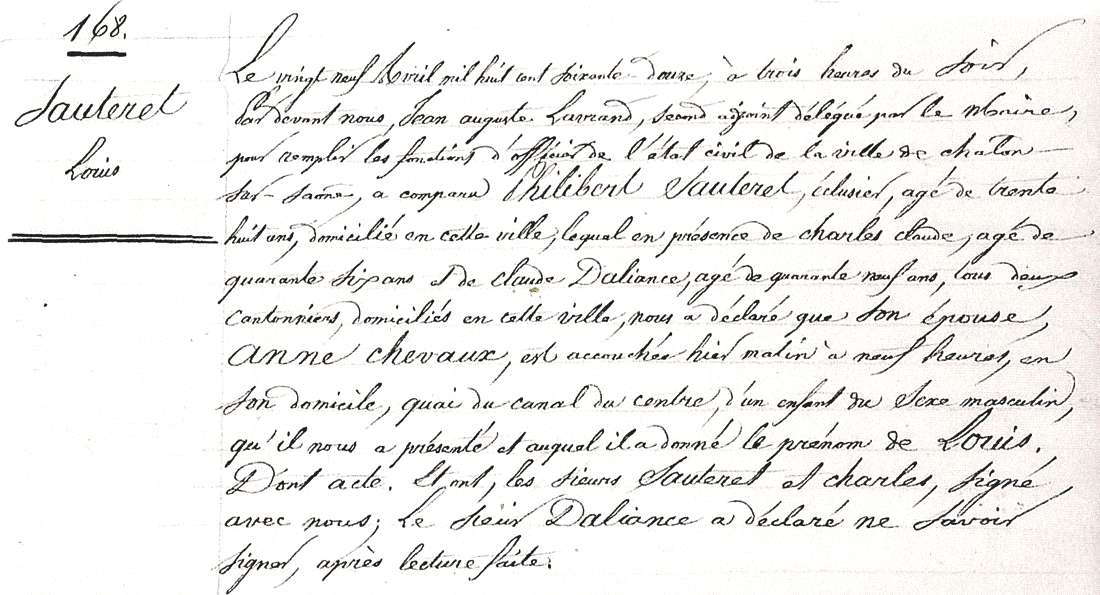 168.
Sauteret
Louis
Le vingt neuf Avril mil huit cent soixante-douze, à trois heures du soir,
Par devant nous, Jean auguste Lavrand, second adjoint délégué par le Maire,
pour remplir les fonctions d'officier de l'état civil de la ville de chalon-
sur-saône, a comparu Philibert Sauteret, éclusier, agé de trente
huit ans, domicilié en cette ville; lequel en présence de charles claude, agé de
quarante six ans et de claude Daliance, agé de quarante neuf ans, tous deux
cantonniers, domiciliés en cette ville, nous a déclaré que son épouse,
anne chevaux, est accouchée hier matin à neuf heures, en
son domicile, quai du canal du centre, d'un enfant du sexe masculin,
qu'il nous a présenté et auquel il a donné le prénom de Louis.
Dont acte. Et ont, les sieurs Sauteret et charles, signé
avec nous; Le sieur Daliance a déclaré ne savoir
signer, après lecture faite.